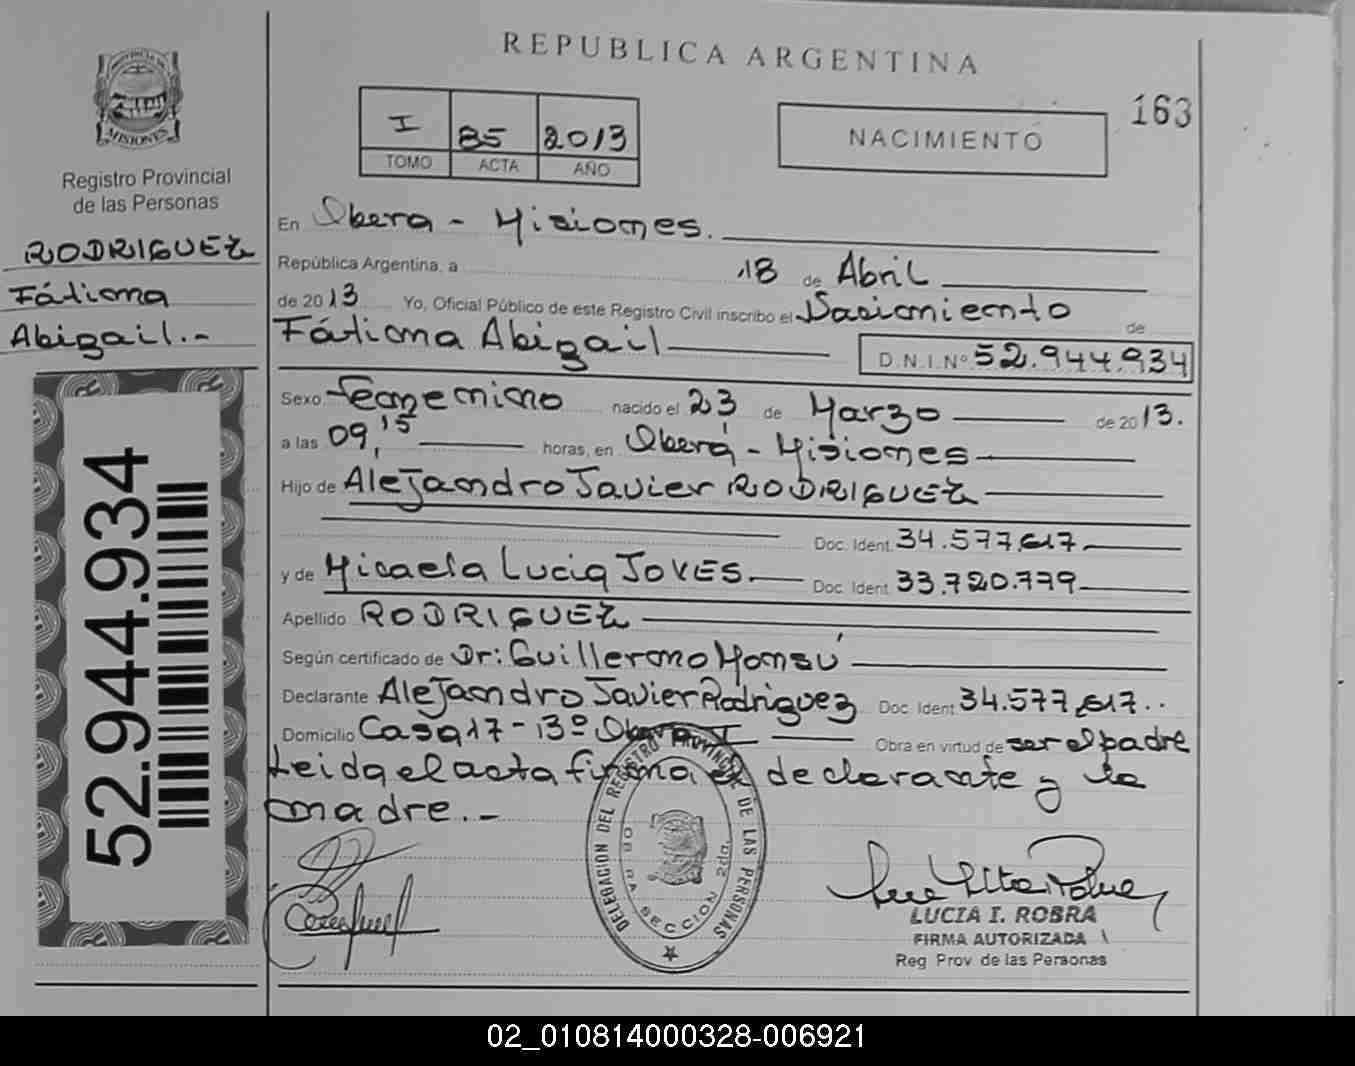 REPUBLICA ARGENTINA
163
PROVINCIA DE
MISIONES
Registro Provincial
de las Personas
RODRIGUEZ
Fátima
Abigail.-
52.944.934
I 85 2013
TOMO ACTA AÑO
NACIMIENTO
En Obera - Misiones.
República Argentina, a 18 de Abril
de 2013 Yo, Oficial Público de este Registro Civil inscribo el Nacimiento de
Fátima Abigail D.N.I.Nº 52.944.934
Sexo Femenino nacido el 23 de Marzo de 2013.
a las 09,15 horas, en Oberá - Misiones
Hijo de Alejandro Javier RODRIGUEZ
Doc. Ident. 34.577.617.
y de Micaela Lucia JOVES. Doc. Ident. 33.720.779
Apellido RODRIGUEZ
Según certificado de Dr: Guillermo Monsú
Declarante Alejandro Javier Rodriguez Doc. Ident. 34.577.617..
Domicilio Casa 17 - 13º Obera I Obra en virtud de ser el padre
Leida el acta firma el declarante y la
madre.-
DELEGACION DEL REGISTRO PROVINCIAL DE LAS PERSONAS
SECCION 2da.
LUCIA I. ROBRA
FIRMA AUTORIZADA
Reg Prov de las Personas
02_010814000328-006921